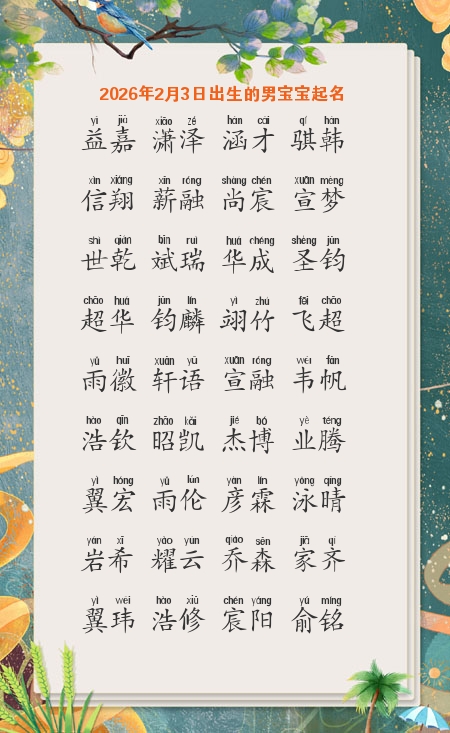 2026年2月3日出生的男宝宝起名
yì jiā xiāo zé hán cái qí hán
益嘉 潇泽 涵才 骐韩
xìn xiáng xīn róng shàng chén xuān mèng
信翔 薪融 尚宸 宣梦
shì qián bīn ruì huá chéng shèng jūn
世乾 斌瑞 华成 圣钧
chāo huá jūn lín yì zhú fēi chāo
超华 钧麟 翊竹 飞超
yǔ huī xuān yǔ xuān róng wéi fān
雨徽 轩语 宣融 韦帆
hào qīn zhāo kǎi jié bó yè téng
浩钦 昭凯 杰博 业腾
yì hóng yǔ lún yàn lín yǒng qíng
翼宏 雨伦 彦霖 泳晴
yán xī yào yún qiáo sēn jiā qí
岩希 耀云 乔森 家齐
yì wěi hào xiū chén yáng yú míng
翼玮 浩修 宸阳 俞铭